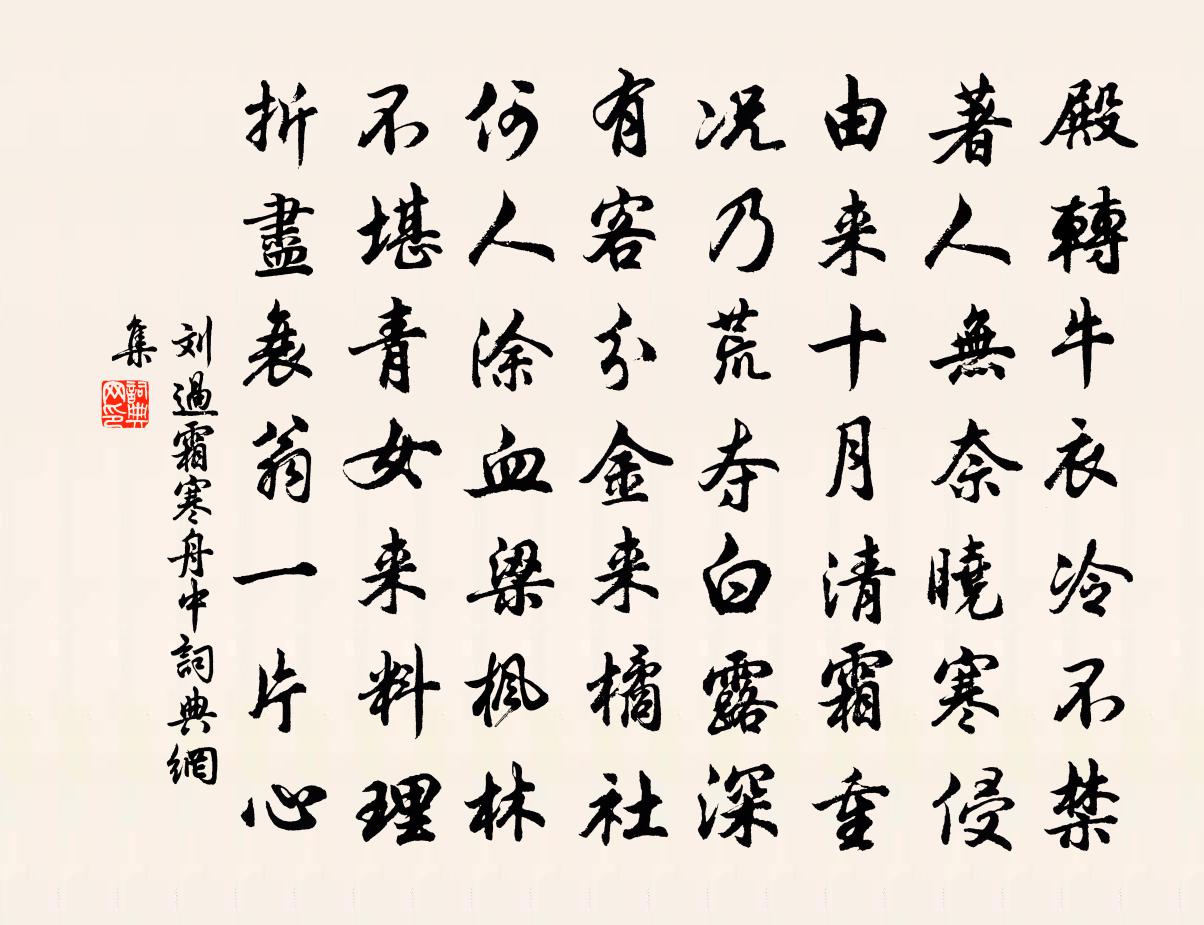 殿轉牛衣冷不禁
著人無奈曉寒侵
由来十月清霜重
况乃荒夺白露深
有客分金来橘社
何人涂血梁楓林
不堪青女来料理
折盡衰翁一片心
刘過霜寒舟中詞典網
集
詞典
网印